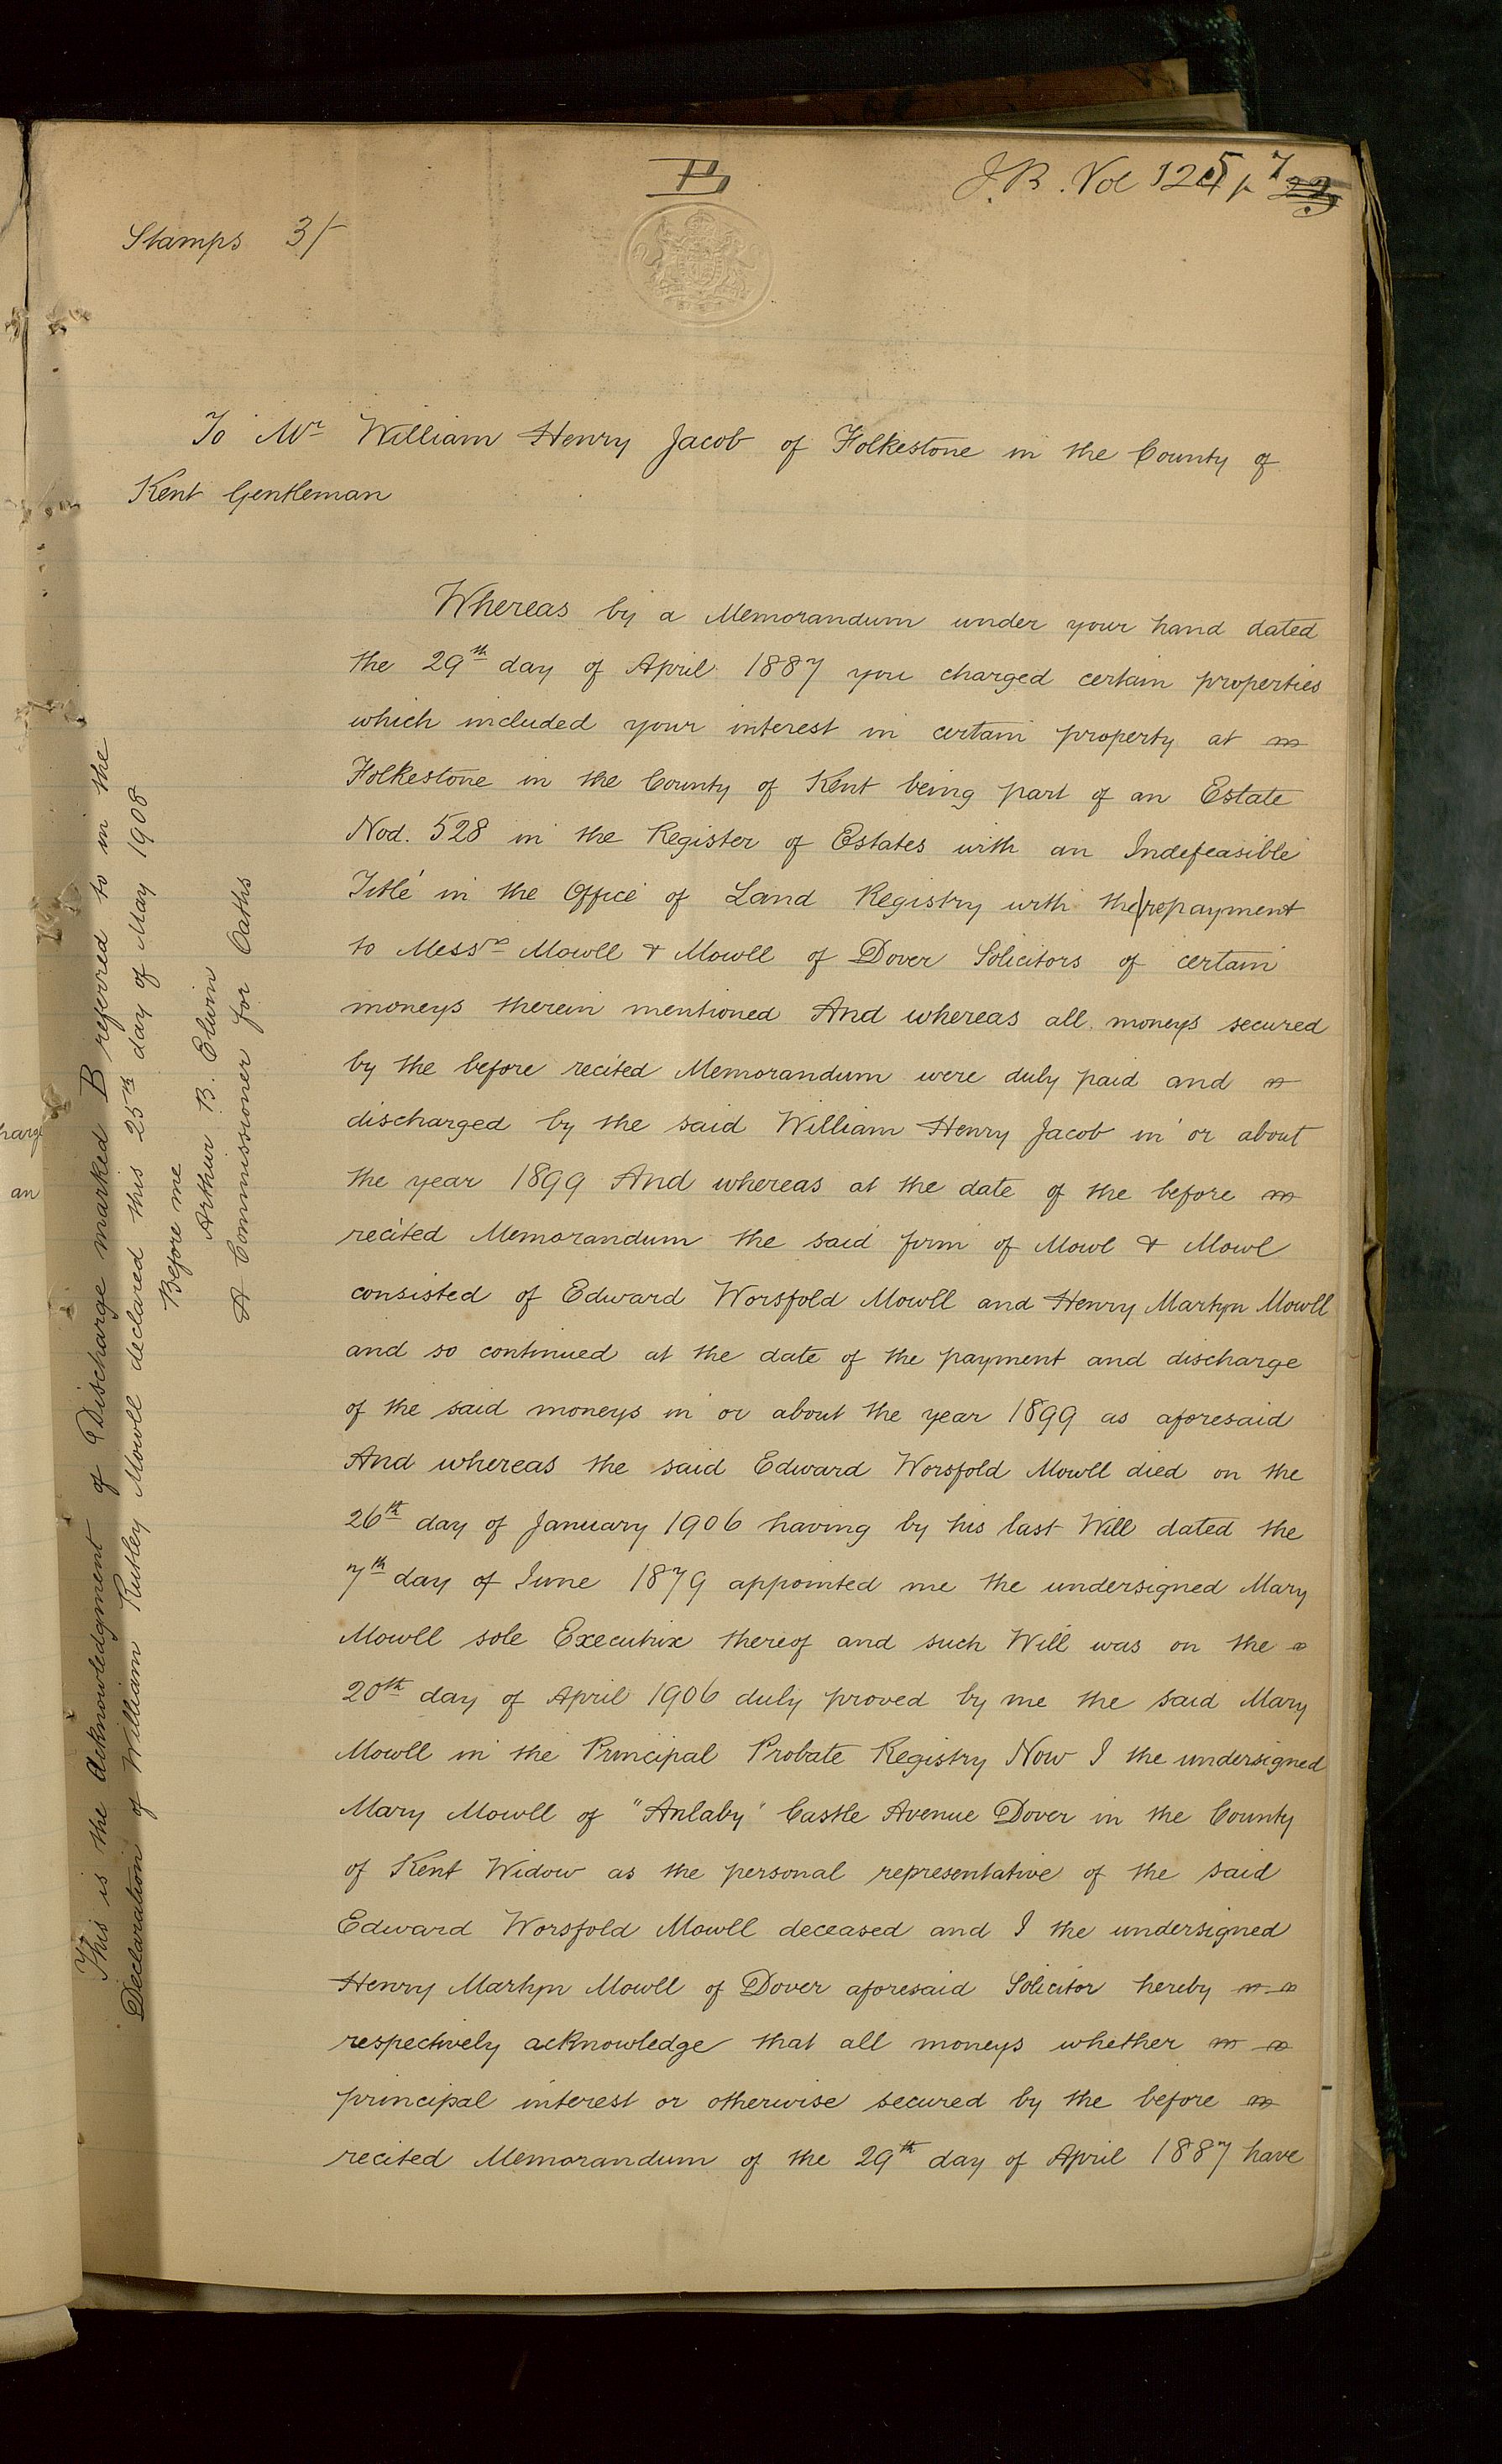 B
J.B. Vol 125 p 7
Stamps 3/-
To Mr William Henry Jacob of Folkestone in the County of
Kent Gentleman
Whereas by a Memorandum under your hand dated
the 29th day of April 1887 you charged certain properties
which included your interest in certain property at
Folkestone in the County of Kent being part of an Estate
Nod. 528 in the Register of Estates with an Indefeasible
Title in the Office of Land Registry with the repayment
to Messrs Mowll & Mowll of Dover Solicitors of certain
moneys therein mentioned And whereas all moneys secured
by the before recited Memorandum were duly paid and
discharged by the said William Henry Jacob in or about
the year 1899 And whereas at the date of the before
recited Memorandum the said firm of Mowl & Mowl
consisted of Edward Worsfold Mowll and Henry Martyn Mowll
and so continued at the date of the payment and discharge
of the said moneys in or about the year 1899 as aforesaid
And whereas the said Edward Worsfold Mowll died on the
26th day of January 1906 having by his last Will dated the
7th day of June 1879 appointed me the undersigned Mary
Mowll sole Executrix thereof and such Will was on the
20th day of April 1906 duly proved by me the said Mary
Mowll in the Principal Probate Registry Now I the undersigned
Mary Mowll of "Anlaby" Castle Avenue Dover in the County
of Kent Widow as the personal representative of the said
Edward Worsfold Mowll deceased and I the undersigned
Henry Martyn Mowll of Dover aforesaid Solicitor hereby
respectively acknowledge that all moneys whether
principal interest or otherwise secured by the before
recited Memorandum of the 29th day of April 1887 have
This is the Acknowledgment of Discharge marked B referred to in the
Declaration of William Rutley Mowll declared this 25th day of May 1908
Before me
Arthur B. Elwin
A Commissioner for Oaths
an